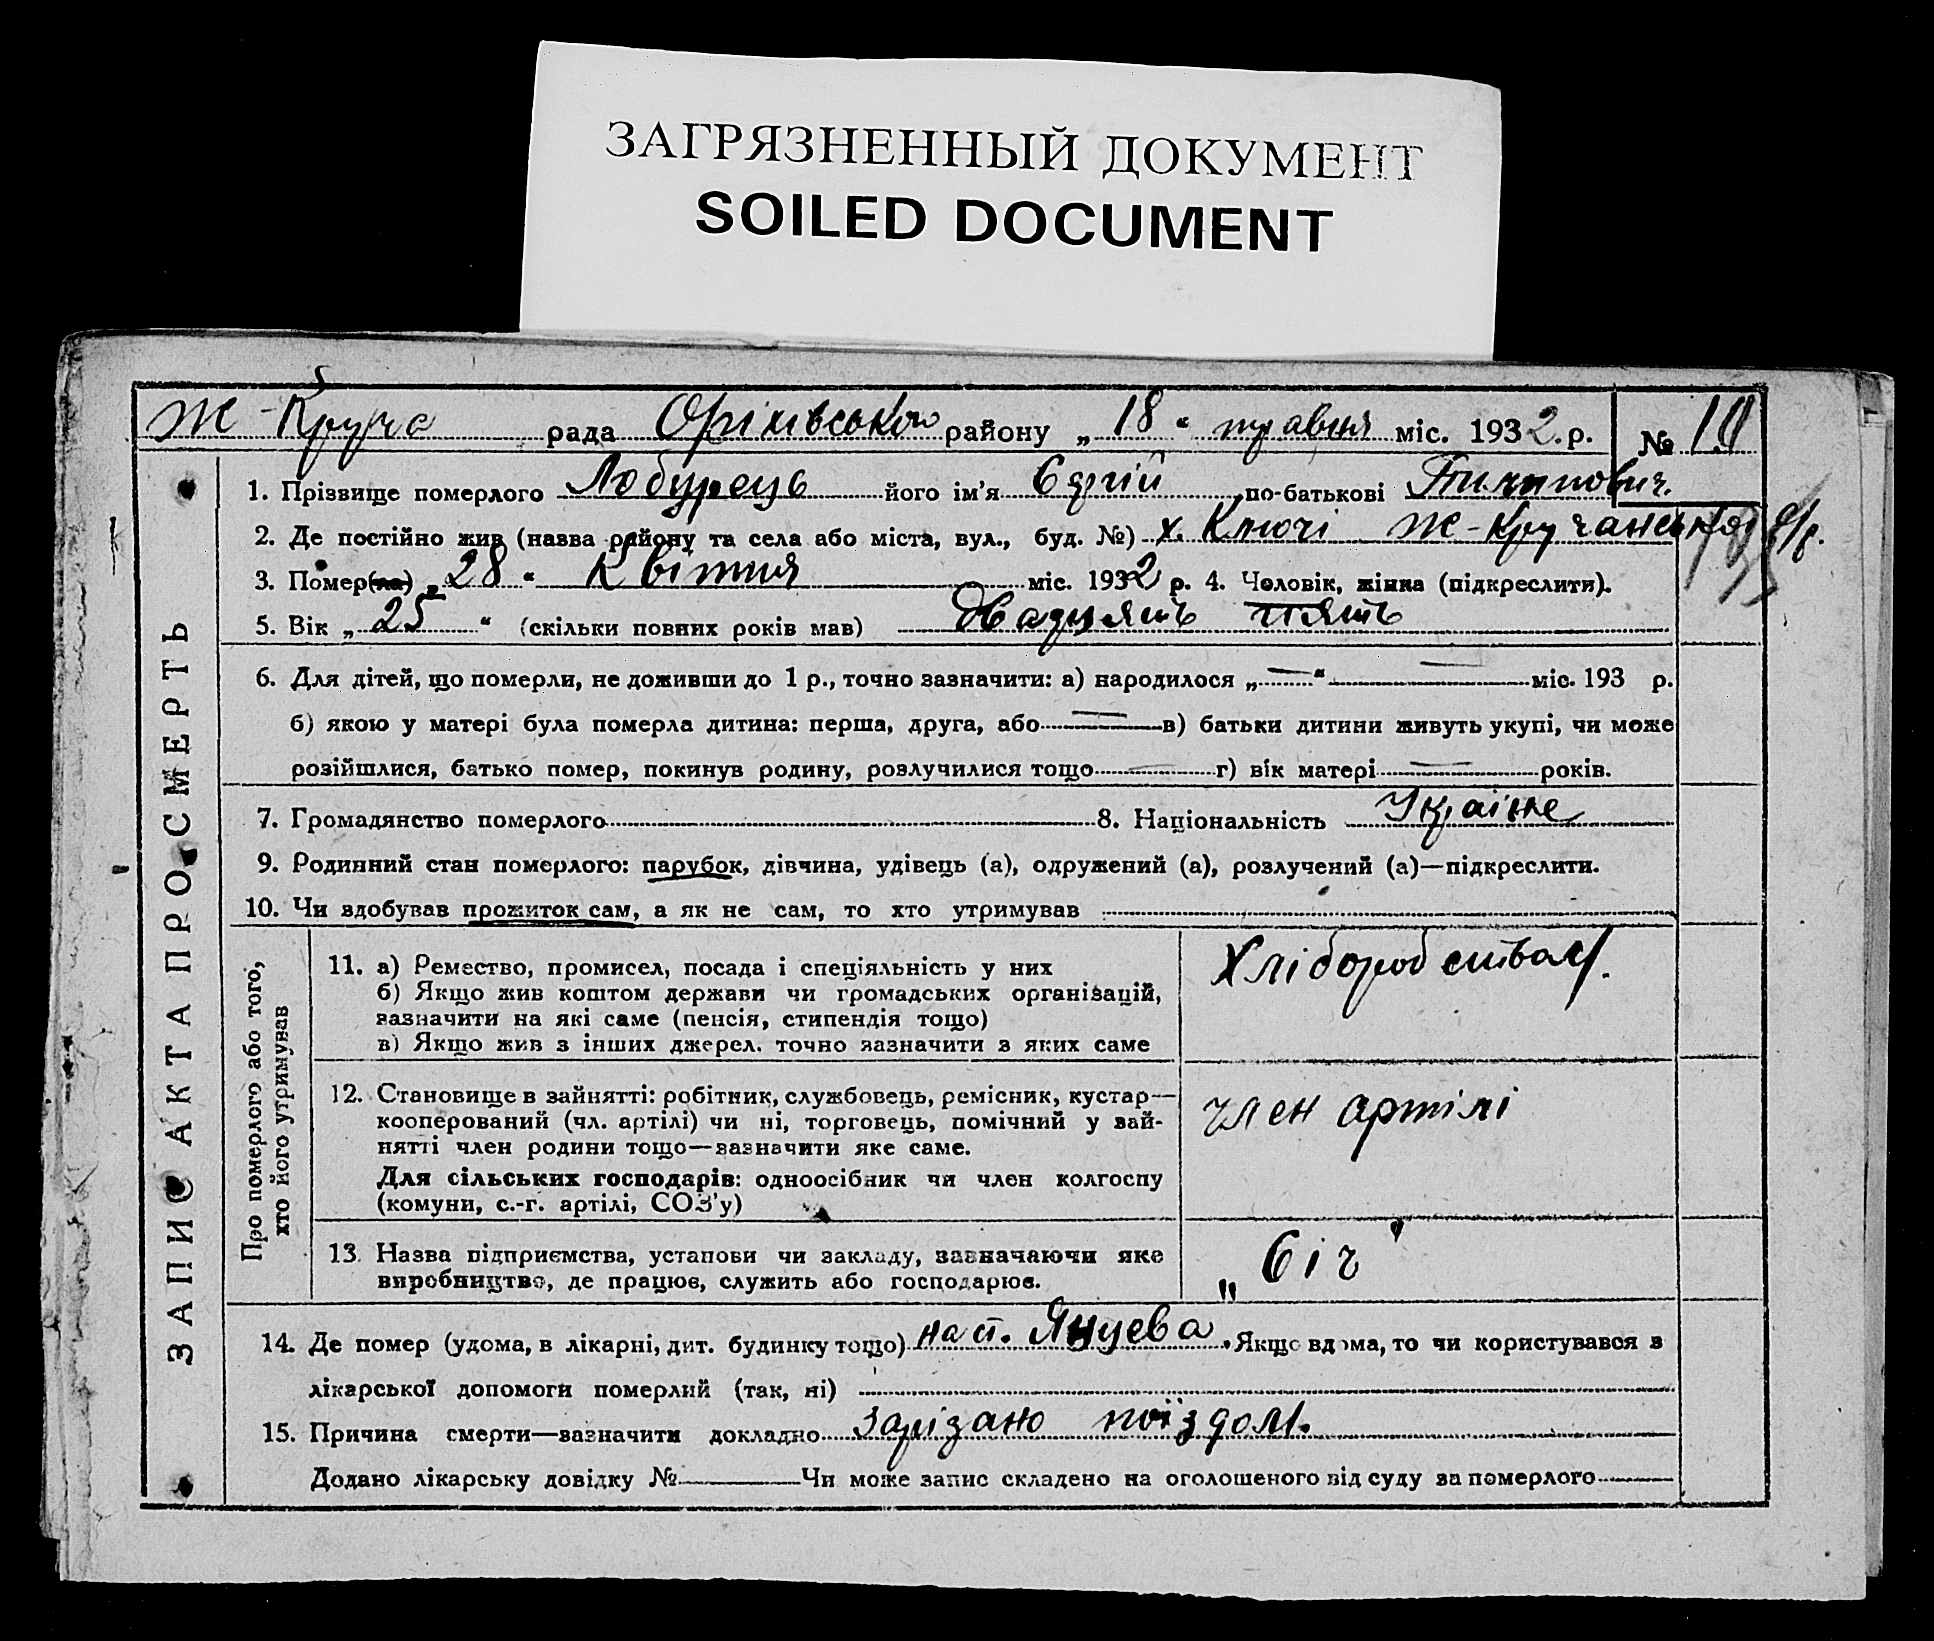 ЗАГРЯЗНЕННЫЙ ДОКУМЕНТ
SOILED DOCUMENT
Ж-Круча рада Оріхівського району „18“ травня міс. 1932 р. № 10
1. Прізвище померлого Лобурець його ім’я Єргій по-батькові
2. Де постійно жив (назва району та села або міста, вул., буд. №) х. Ключі Ж-Кручанської с/р.
3. Помер(ла) „28“ Квітня міс. 1932 р. 4. Чоловік, жінка (підкреслити).
5. Вік „25“ (скільки повних років мав) Двадцять пять
6. Для дітей, що померли, не доживши до 1 р., точно зазначити: а) народилося „—“ — міс. 193 р.
б) якою у матері була померла дитина: перша, друга, або — в) батьки дитини живуть укупі, чи може
розійшлися, батько помер, покинув родину, розлучилися тощо — г) вік матері — років.
7. Громадянство померлого 8. Національність Украінец
9. Родинний стан померлого: парубок, дівчина, удівець (а), одружений (а), розлучений (а)—підкреслити.
10. Чи здобував прожиток сам, а як не сам, то хто утримував
ЗАПИС АКТА ПРО СМЕРТЬ
Про померлого або того,
хто його утримував
11. а) Ремество, промисел, посада і спеціяльність у них
б) Якщо жив коштом держави чи громадських організацій,
зазначити на які саме (пенсія, стипендія тощо)
в) Якщо жив з інших джерел, точно зазначити з яких саме
Хліборобством.
12. Становище в зайнятті: робітник, службовець, ремісник, кустар—
кооперований (чл. артілі) чи ні, торговець, помічний у зай-
нятті член родини тощо—зазначити яке саме.
Для сільських господарів: одноосібник чи член колгоспу
(комуни, с.-г. артілі, СОЗ’у)
член артілі
13. Назва підприємства, установи чи закладу, зазначаючи яке
виробництво, де працює, служить або господарює.
14. Де помер (удома, в лікарні, дит. будинку тощо) на ст. Янцева. Якщо вдома, то чи користувався з
лікарської допомоги померлий (так, ні)
15. Причина смерти—зазначити докладно Зарізано поїздом.
Додано лікарську довідку № — Чи може запис складено на оголошеного від суду за померлого —